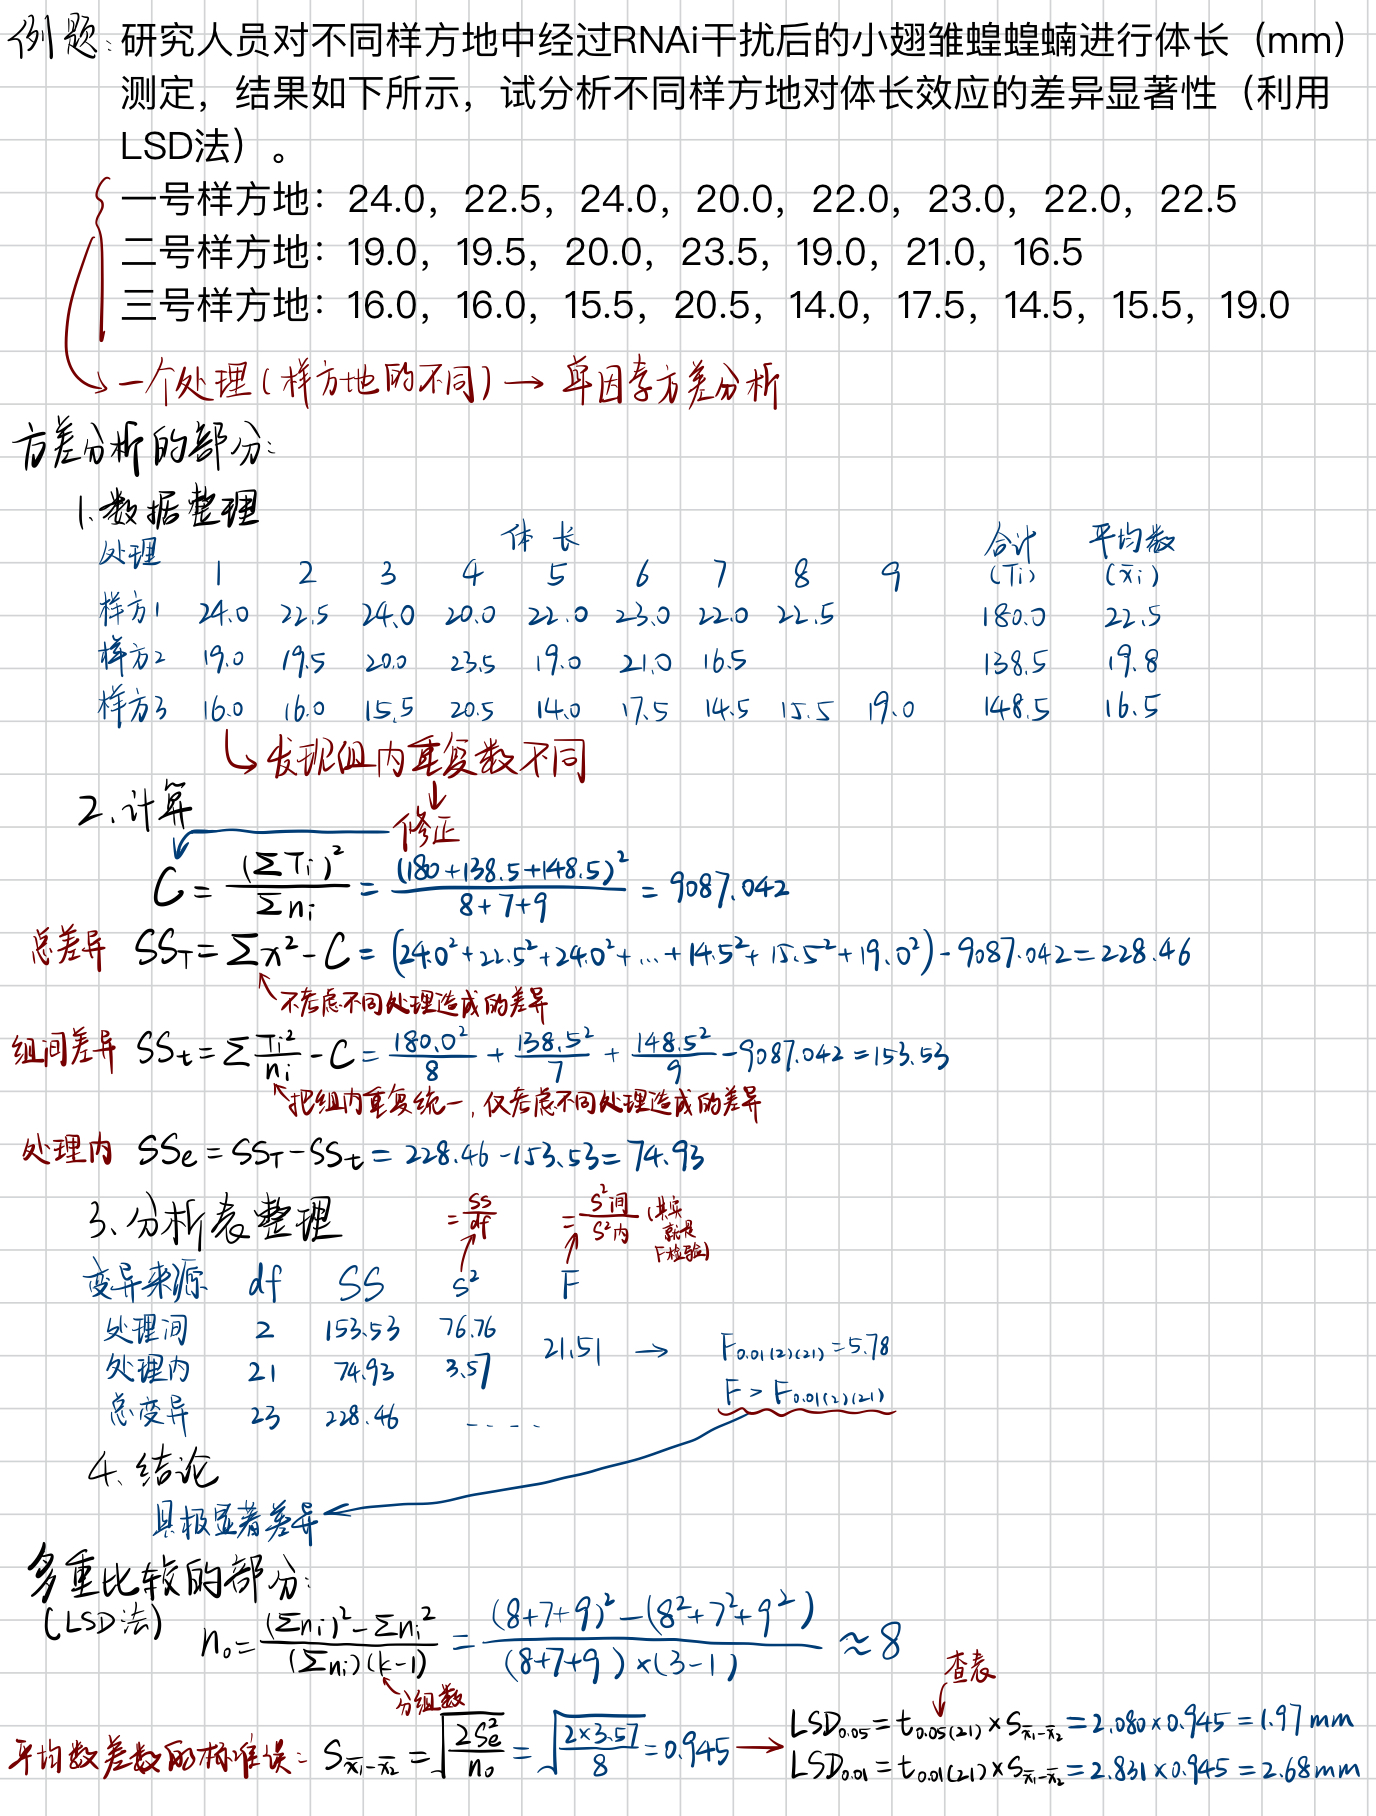 例题：研究人员对不同样方地中经过RNAi干扰后的小翅雏蝗蝗蝻进行体长（mm）
测定，结果如下所示，试分析不同样方地对体长效应的差异显著性（利用
LSD法）。
一号样方地：24.0，22.5，24.0，20.0，22.0，23.0，22.0，22.5
二号样方地：19.0，19.5，20.0，23.5，19.0，21.0，16.5
三号样方地：16.0，16.0，15.5，20.5，14.0，17.5，14.5，15.5，19.0
一个处理(样方地的不同) → 单因素方差分析
方差分析的部分：
1.数据整理
处理 体长 合计 平均数
1 2 3 4 5 6 7 8 9 (Ti) (x̄i)
样方1 24.0 22.5 24.0 20.0 22.0 23.0 22.0 22.5 180.0 22.5
样方2 19.0 19.5 20.0 23.5 19.0 21.0 16.5 138.5 19.8
样方3 16.0 16.0 15.5 20.5 14.0 17.5 14.5 15.5 19.0 148.5 16.5
发现组内重复数不同
2.计算
修正
C = (ΣTi)²/Σni = (180+138.5+148.5)²/8+7+9 = 9087.042
总差异 SS_T = Σx² - C = (24.0²+22.5²+24.0²+...+14.5²+15.5²+19.0²) - 9087.042 = 228.46
不考虑不同处理造成的差异
组间差异 SS_t = ΣTi²/ni - C = 180.0²/8 + 138.5²/7 + 148.5²/9 - 9087.042 = 153.53
把组内重复统一，仅考虑不同处理造成的差异
处理内 SSe = SS_T - SS_t = 228.46 - 153.53 = 74.93
3、分析表整理 = SS/df = S²间/S²内 (其实就是F检验)
变异来源 df SS S² F
处理间 2 153.53 76.76
21.51 → F0.01(2)(21) = 5.78
处理内 21 74.93 3.57
F > F0.01(2)(21)
总变异 23 228.46 ----
4、结论
具极显著差异
多重比较的部分：
(LSD法) n₀ = (Σni)² - Σni²/(Σni)(k-1) = (8+7+9)² - (8²+7²+9²)/(8+7+9)×(3-1) ≈ 8
分组数
查表
平均数差数的标准误： S x̄₁-x̄₂ = √2Se²/n₀ = √2×3.57/8 = 0.945 →
LSD0.05 = t0.05(21) × S x̄₁-x̄₂ = 2.080×0.945 = 1.97mm
LSD0.01 = t0.01(21) × S x̄₁-x̄₂ = 2.831×0.945 = 2.68mm